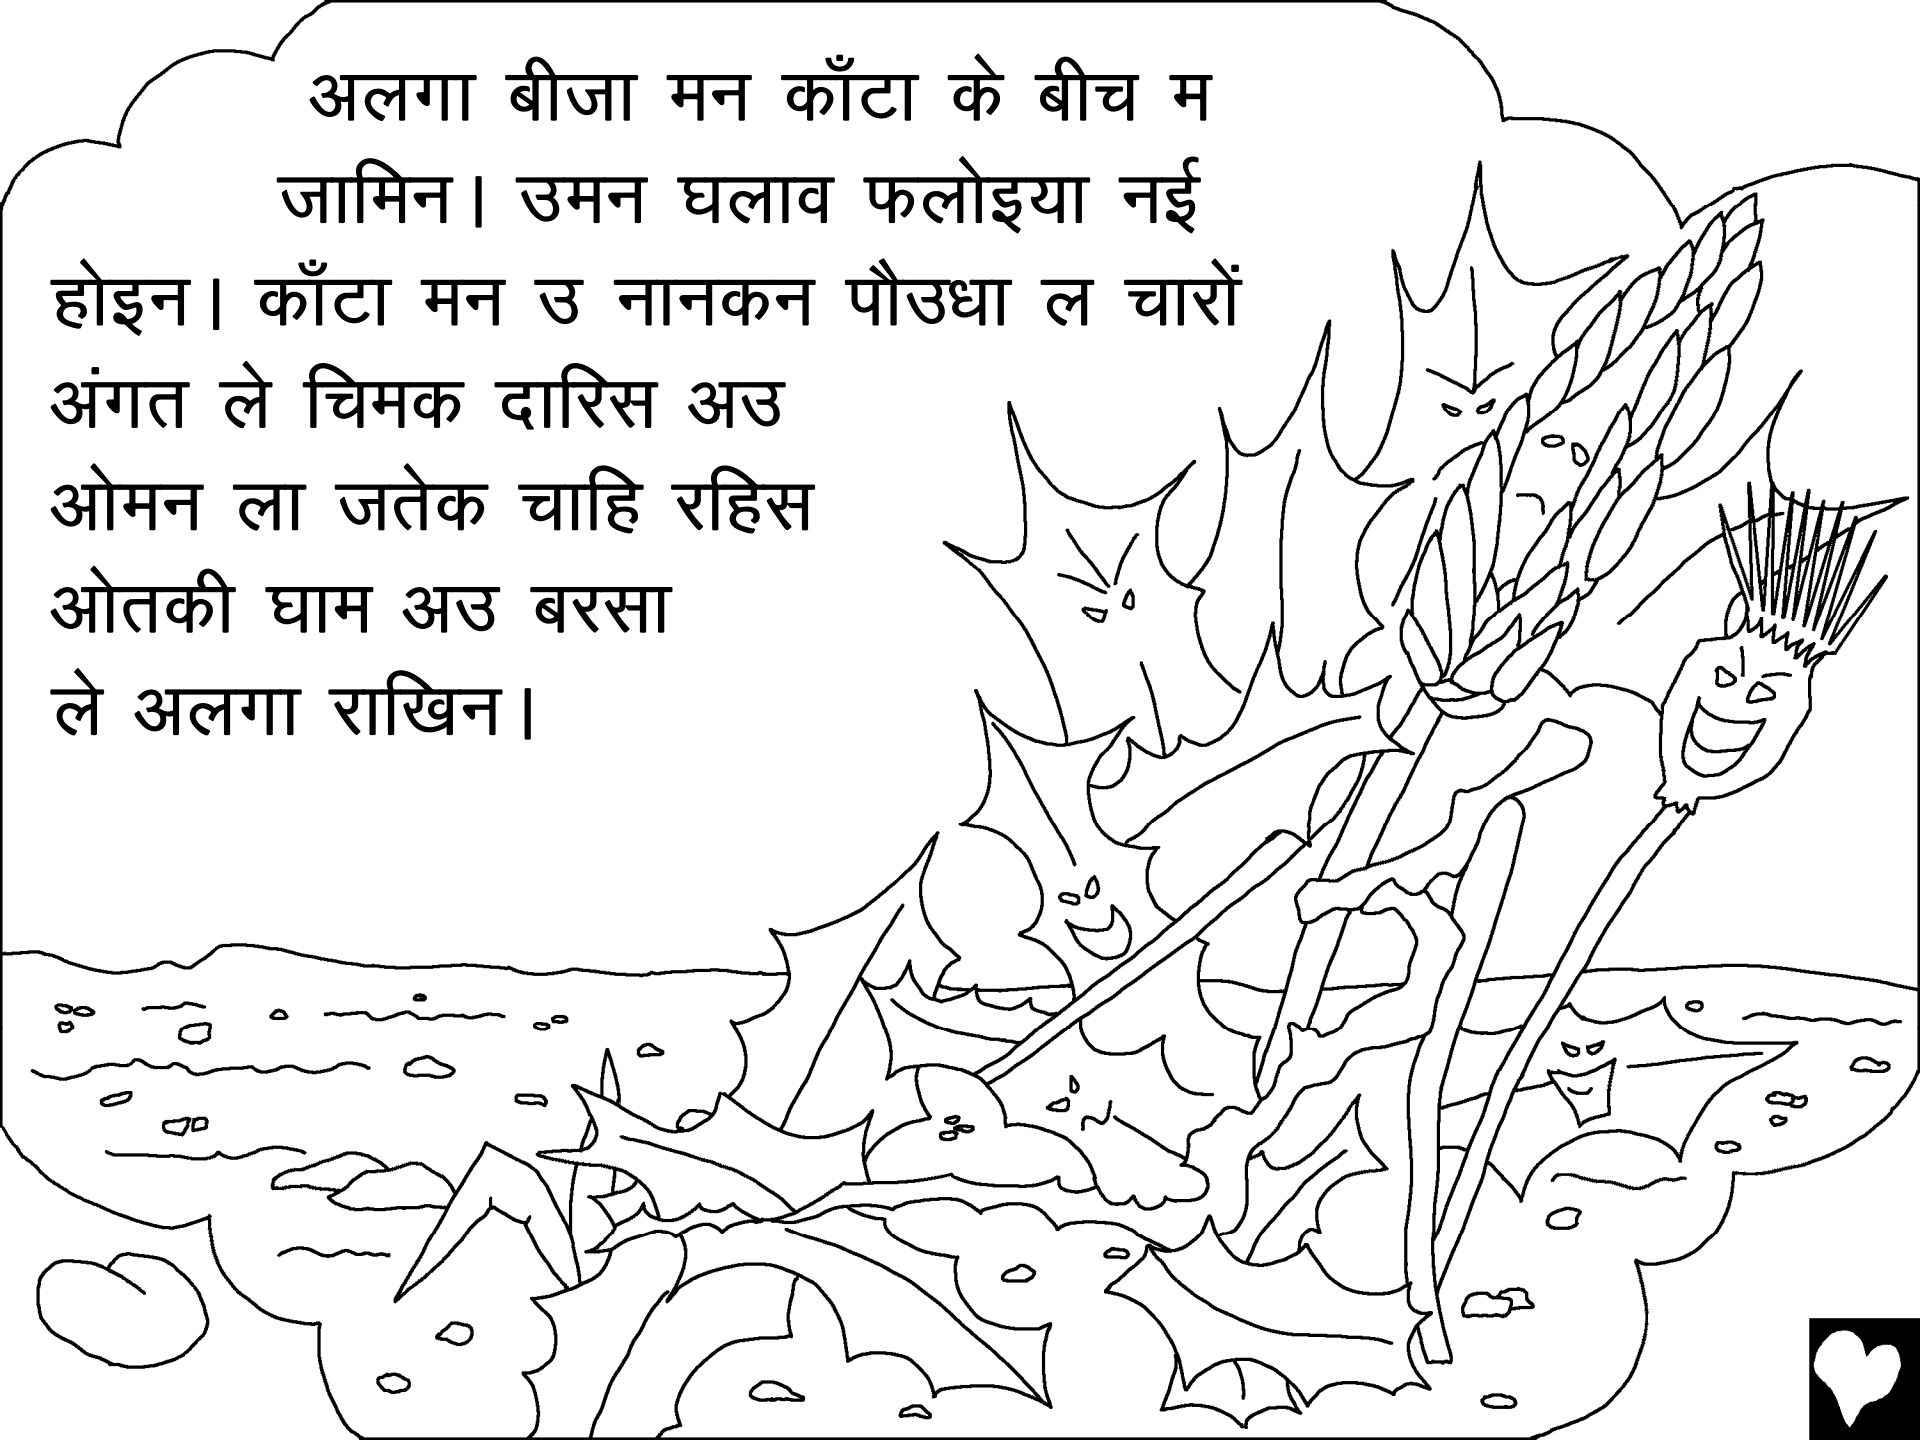 अलगा बीजा मन काँटा के बीच म
जामिन। उमन घलाव फलोइया नई
होइन। काँटा मन उ नानकन पौउधा ल चारों
अंगत ले चिमक दारिस अउ
ओमन ला जतेक चाहि रहिस
ओतकी घाम अउ बरसा
ले अलगा राखिन।